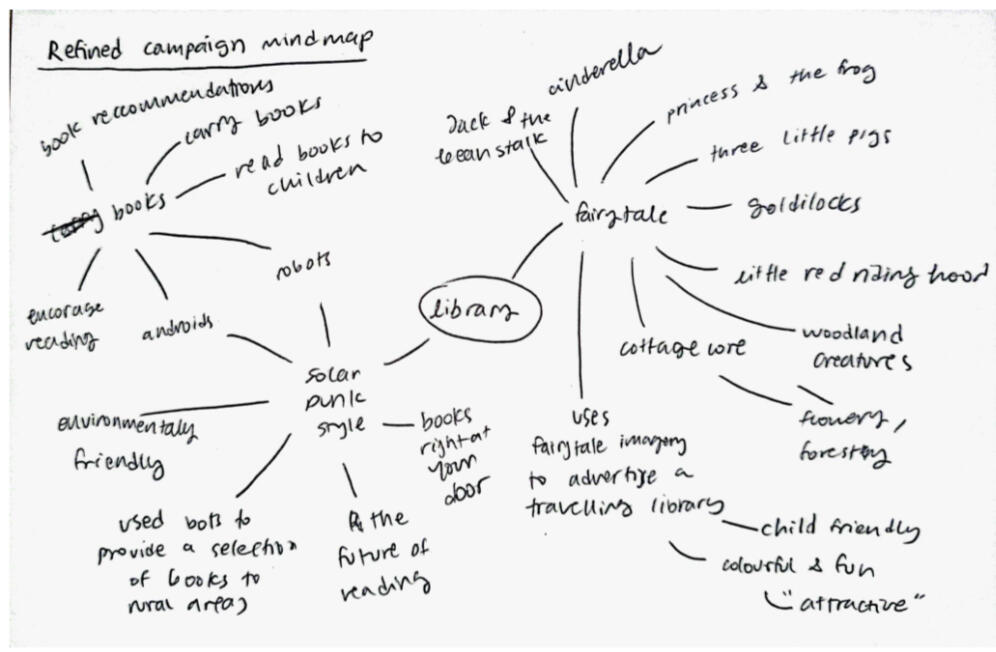 Refined campaign mindmap
book reccommendations
carry books
read books to
children
books
encorage
reading
androids
robots
library
solar
punk
style
environmentaly
friendly
used bots to
provide a selection
of books to
rural areas
the
future of
reading
books
right at
your
door
fairytale
Jack & the
beanstalk
cinderella
princess & the frog
three little pigs
goldilocks
little red riding hood
woodland
creatures
cottage core
flowery,
forestry
uses
fairytale imagery
to advertise a
travelling library
child friendly
colourful & fun
"attractive"